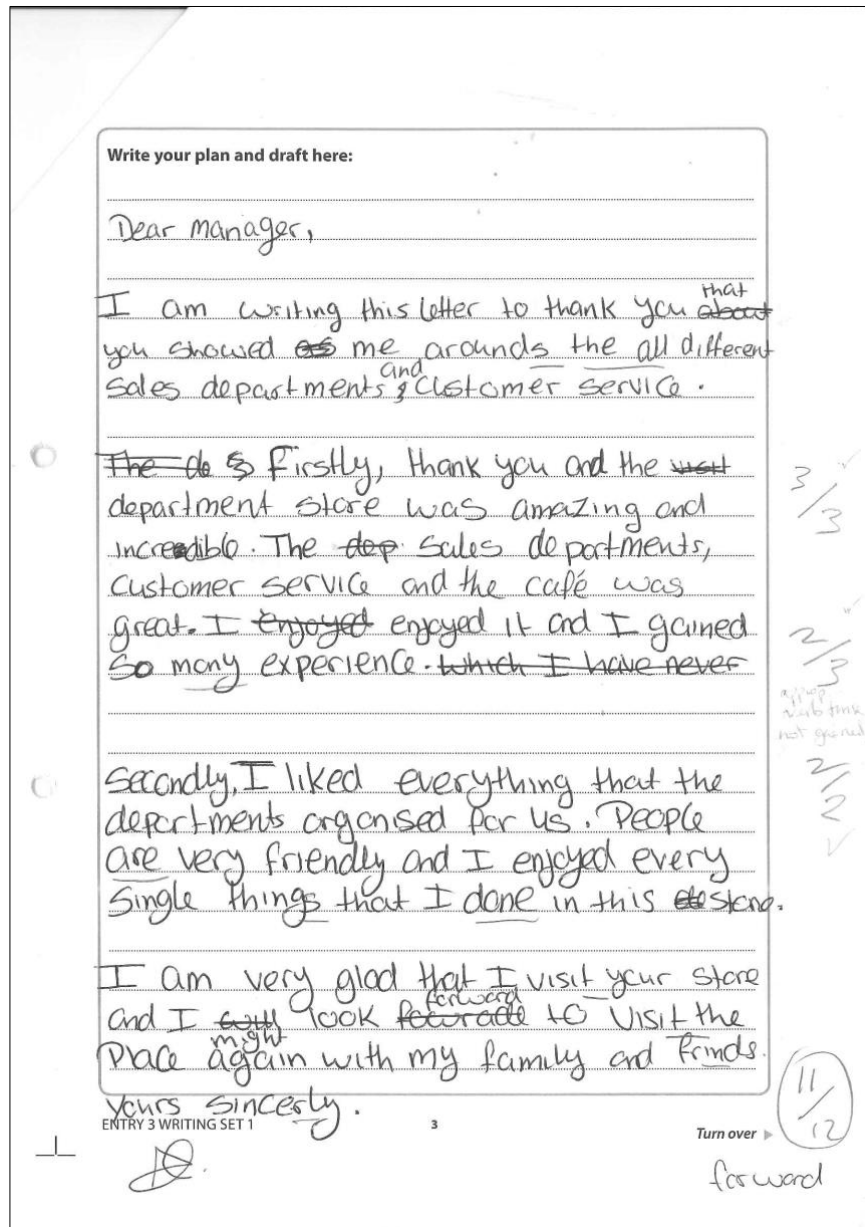 Write your plan and draft here:
Dear manager,
that
I am writing this letter to thank you about
you showed me arounds the all different
and
sales departments, customer service.
The de Firstly, thank you and the visit
department store was amazing and
incredible. The dep sales departments,
customer service and the café was
great. I enjoyed enjoyed it and I gained
so many experience. which I have never
Secondly, I liked everything that the
departments organised for us. People
are very friendly and I enjoyed every
single things that I done in this store.
I am very glad that I visit your store
forward
and I will look to visit the
might
place again with my family and frinds.
yours sincerly.
ENTRY 3 WRITING SET 1
3
Turn over
3/3
2/3
approp
verb tense
not gained
2/2
11/12
forward